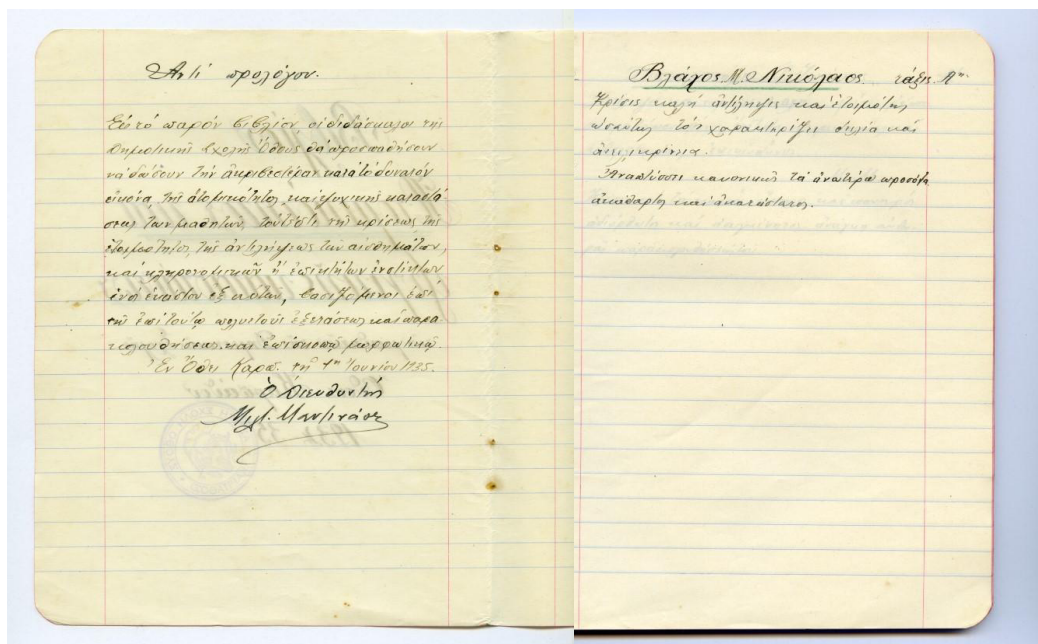 Ἀντὶ προλόγου.
Εἰς τὸ παρὸν βιβλίον οἱ διδάσκαλοι τῆς
Δημοτικῆς Σχολῆς Ὄθους θὰ προσπαθήσουν
νὰ δώσουν τὴν ἀκριβεστέραν κατὰ τὸ δυνατὸν
εἰκόνα, τῆς ἀτομικότητος καὶ ψυχικῆς καταστά
σεως τῶν μαθητῶν, τουτέστι τῆς κρίσεως, τῆς
ἑτοιμότητος, τῆς ἀντιλήψεως τῶν αἰσθημάτων,
καὶ κληρονομικῶν ἢ ἐπικτήτων ἐνστίκτων
ἑνὸς ἑκάστου ἐξ αὐτῶν, βασιζόμενοι ἐπὶ
τῆς ἐπὶ τούτῳ πολυετοῦς ἐξετάσεως καὶ παρα
κολουθήσεως καὶ ἐπὶ σκοπῷ μορφωτικῷ.
Ἐν Ὄθει Καρπ. τῇ 1ῃ Ἰουνίου 1935.
Ὁ Διευθυντὴς
Βλάχος Μ. Νικόλαος. τάξις Αη.
Κρίσις καλὴ ἀντίληψις καὶ ἑτοιμότης
τὸν χαρακτηρίζει δειλία καὶ
Ἀναπτύσσει κανονικῶς τὰ ἀνωτέρω προσόντα
ἀκάθαρτος καὶ ἀκατάστατος.